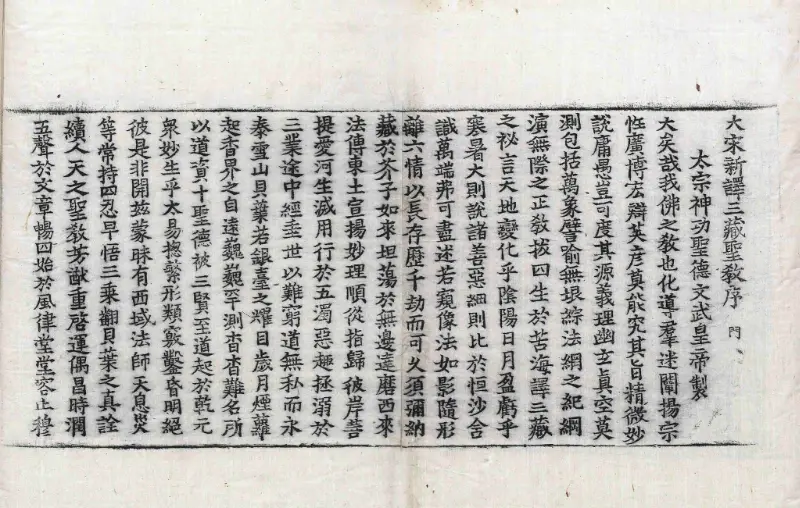 大宋新譯三藏聖教序 門
太宗神功聖德文武皇帝製
大矣哉我佛之教也化導羣迷闡揚宗
性廣博宏辯英彥莫能究其旨精微妙
說庸愚豈可度其源義理幽玄真空莫
測包括萬象譬喻無垠綜法網之紀綱
演無際之正教拔四生於苦海譯三藏
之祕言天地變化乎陰陽日月盈虧乎
寒暑大則說諸善惡細則比於恒沙含
識萬端弗可盡述若窺像法如影隨形
離六情以長存歷千劫而可久須彌納
藏於芥子如來坦蕩於無邊達磨西來
法傳東土宣揚妙理順從指歸彼岸菩
提愛河生滅用行於五濁惡趣拯溺於
三業途中經垂世以難窮道無私而永
泰雪山貝葉若銀臺之耀目歲月煙蘿
起香界之自遠巍巍罕測杳杳難名所
以道資十聖德被三賢至道起於乾元
眾妙生乎太易揔繁形類竅鑿昏明絕
彼是非開茲蒙昧有西域法師天息災
等常持四忍早悟三乘翻貝葉之真詮
續人天之聖教芳猷重啓運偶昌時潤
五聲於文章暢四始於風律堂堂容止穆